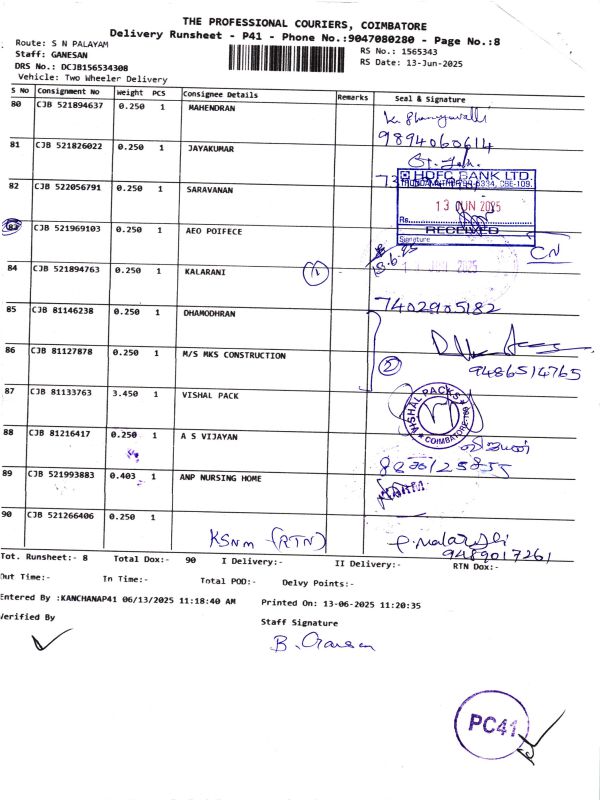 THE PROFESSIONAL COURIERS, COIMBATORE
Delivery Runsheet - P41 - Phone No.:9047080280 - Page No.:8
Route: S N PALAYAM
RS No.: 1565343
Staff: GANESAN
RS Date: 13-Jun-2025
DRS No.: DCJB156534308
Vehicle: Two Wheeler Delivery
S No Consignment No Weight PCS Consignee Details Remarks Seal & Signature
80 CJB 521894637 0.250 1 MAHENDRAN
9894060614
81 CJB 521826022 0.250 1 JAYAKUMAR
82 CJB 522056791 0.250 1 SARAVANAN
HDFC BANK LTD.
13 JUN 2025
Rs.
RECEIVED
Signature
83 CJB 521969103 0.250 1 AEO POIFECE
CN
84 CJB 521894763 0.250 1 KALARANI 1
7402905182
85 CJB 81146238 0.250 1 DHAMODHRAN
86 CJB 81127878 0.250 1 M/S MKS CONSTRUCTION 2
9486514765
87 CJB 81133763 3.450 1 VISHAL PACK
VISHAL PACKS
COIMBATORE-109
88 CJB 81216417 0.250 1 A S VIJAYAN
89 CJB 521993883 0.403 1 ANP NURSING HOME
90 CJB 521266406 0.250 1
KSNM (RTN)
9489017261
Tot. Runsheet:- 8 Total Dox:- 90 I Delivery:- II Delivery:- RTN Dox:-
Out Time:- In Time:- Total POD:- Delvy Points:-
Entered By :KANCHANAP41 06/13/2025 11:18:40 AM Printed On: 13-06-2025 11:20:35
Verified By
Staff Signature
PC41